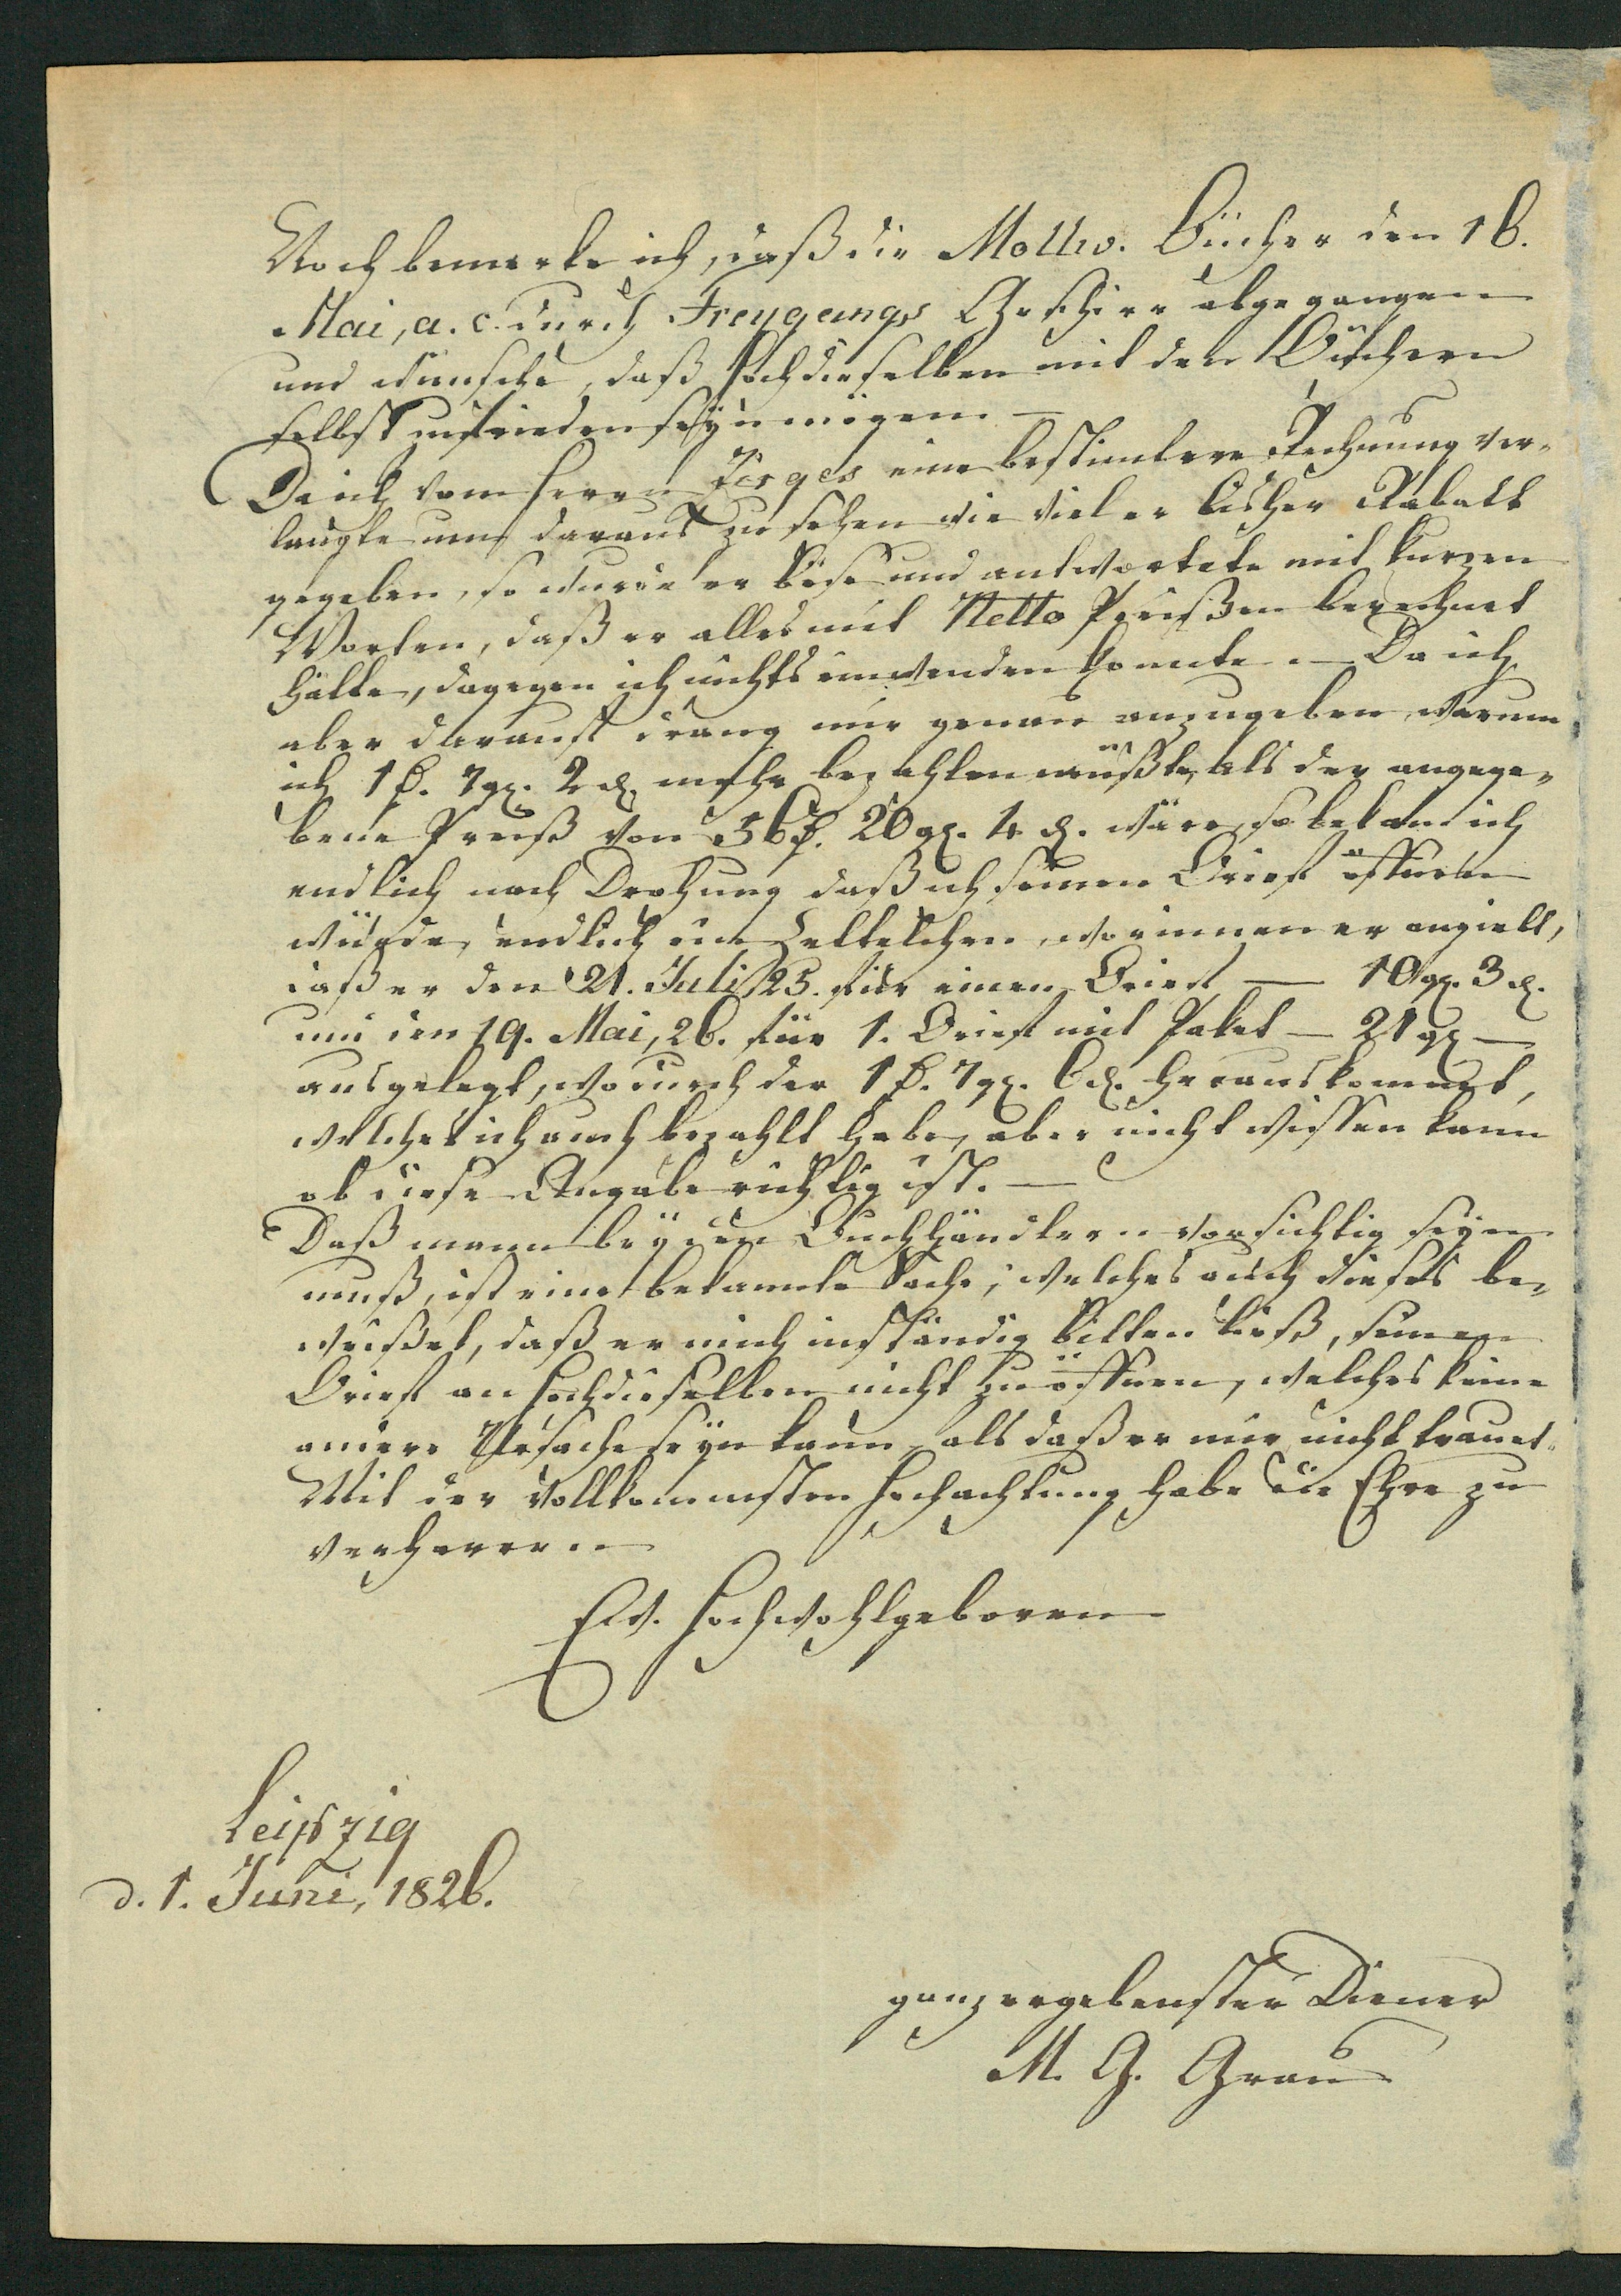 Noch bemerke ich, daß die Mollw. Bücher den 16.
Mai, a. c. durch Freygangs Geschirr abgegangen
und wünsche, daß Hochdieselben mit den Büchern
selbst zufrieden seyn mögen. —
Da ich vom Herrn Zirges eine bestimtere Rechnung ver-
langte um daraus zu sehen wie viel er bisher Rabatt
gegeben, so wurde er böse und antwortete mit kurzen
Worten, daß er alles mit Netto Preißen berechnet
hätte, dagegen ich nichts einwenden konnte. — Da ich
aber darauf drang mir genau anzugeben, warum
ich 1 f. 7 gr. 2 d. mehr bezahlen müßte, als der angege-
bene Preiß von 56 f. 20 gr. 4 d. wäre, so bekam ich
endlich nach Drohung daß ich seinen Brief öffnen
würde, endlich ein Zettelchen, worinnen er angiebt,
daß er den 21. Juli 25. für einen Brief — 10 gr. 3 d.
und den 19. Mai, 26. für 1. Brief mit Paket — 21 gr —
ausgelegt, wodurch der 1 f. 7 gr. 6 d. herauskommt,
welches ich auch bezahlt habe, aber nicht wissen kann
ob diese Angabe richtig ist. —
Daß mann bey den Buchhändlern vorsichtig seyn
muß, ist eine bekannte Sache, welches auch dieses be-
weißet, daß er mich inständig bitten ließ, seinen
Brief an Hochdieselben nicht zu öffnen, welches keine
andere Ursache seyn kann, als daß er mir nicht trauet.
Mit der vollkommensten Hochachtung habe die Ehre zu
verharren
Ew. Hochwohlgeboren
Leipzig
d. 1. Juni, 1826.
ganz ergebenster Diener
M. G. Grau